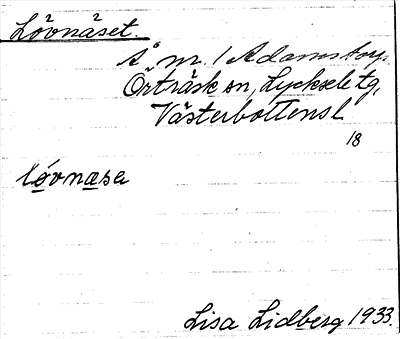 Lövnäset.
å m. / Adamstorp.
Örträsk sn, Lycksele tg,
Västerbottens l
18
lóvnæsa
Lisa Lidberg 1933.